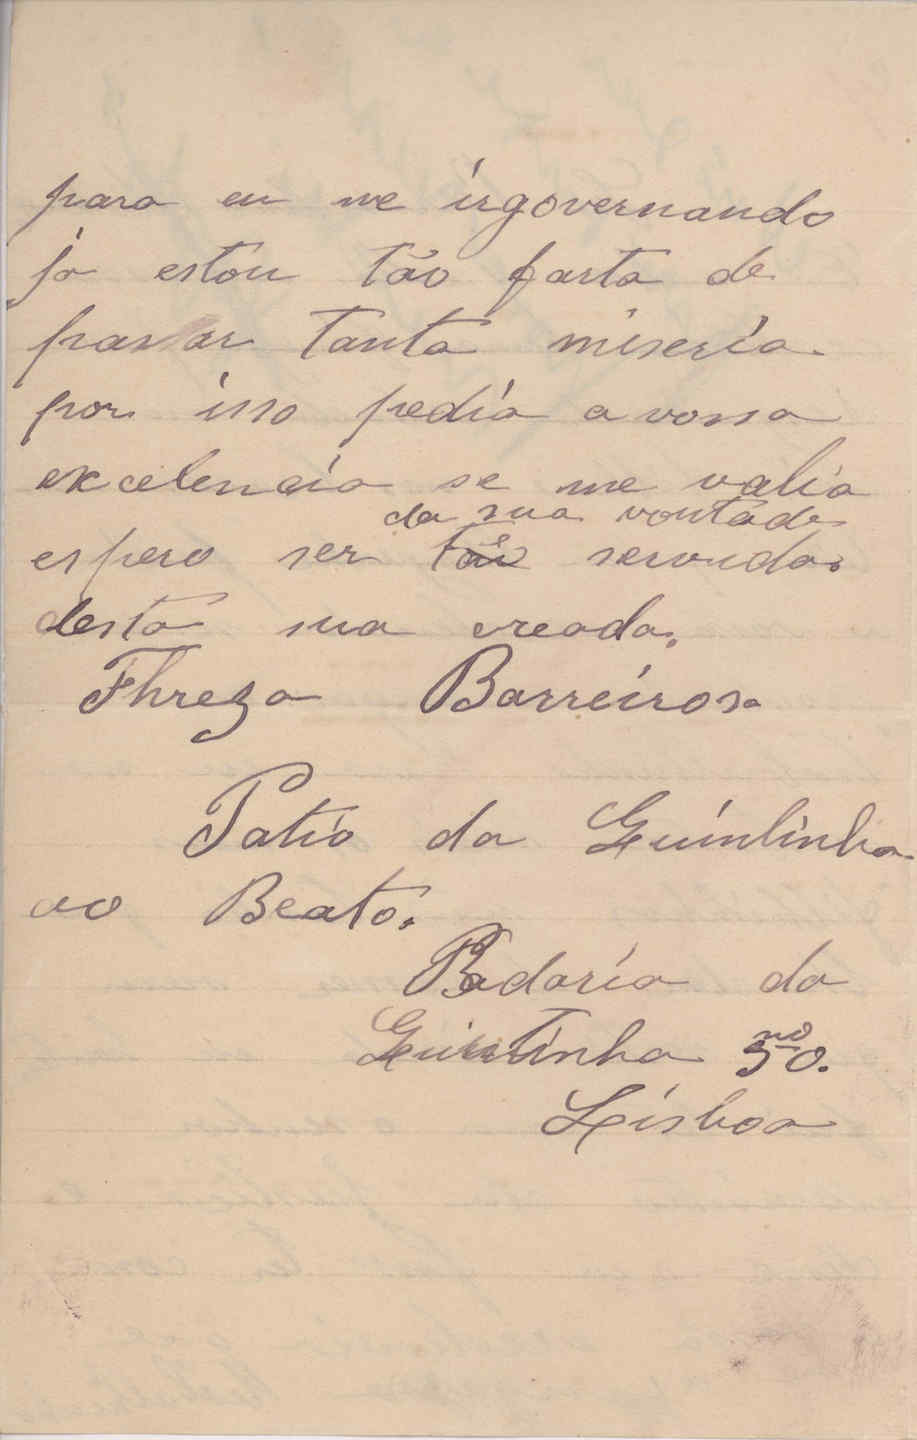 para eu me irgovernando
ja estou tão farta de
passar tanta miseria.
por isso pedia a vossa
excelencia se me valia
da sua vontade
espero ser servida.
desta sua creada.
Threza Barreiros.
Patio da Quintinha
ao Beato.
Padaria da
Quintinha nº 50.
Lisboa